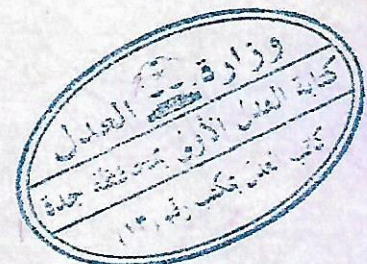 وزارة العدل
كتابة العدل الأولى بمحافظة جدة
كاتب عدل مكتب رقم (١٣)